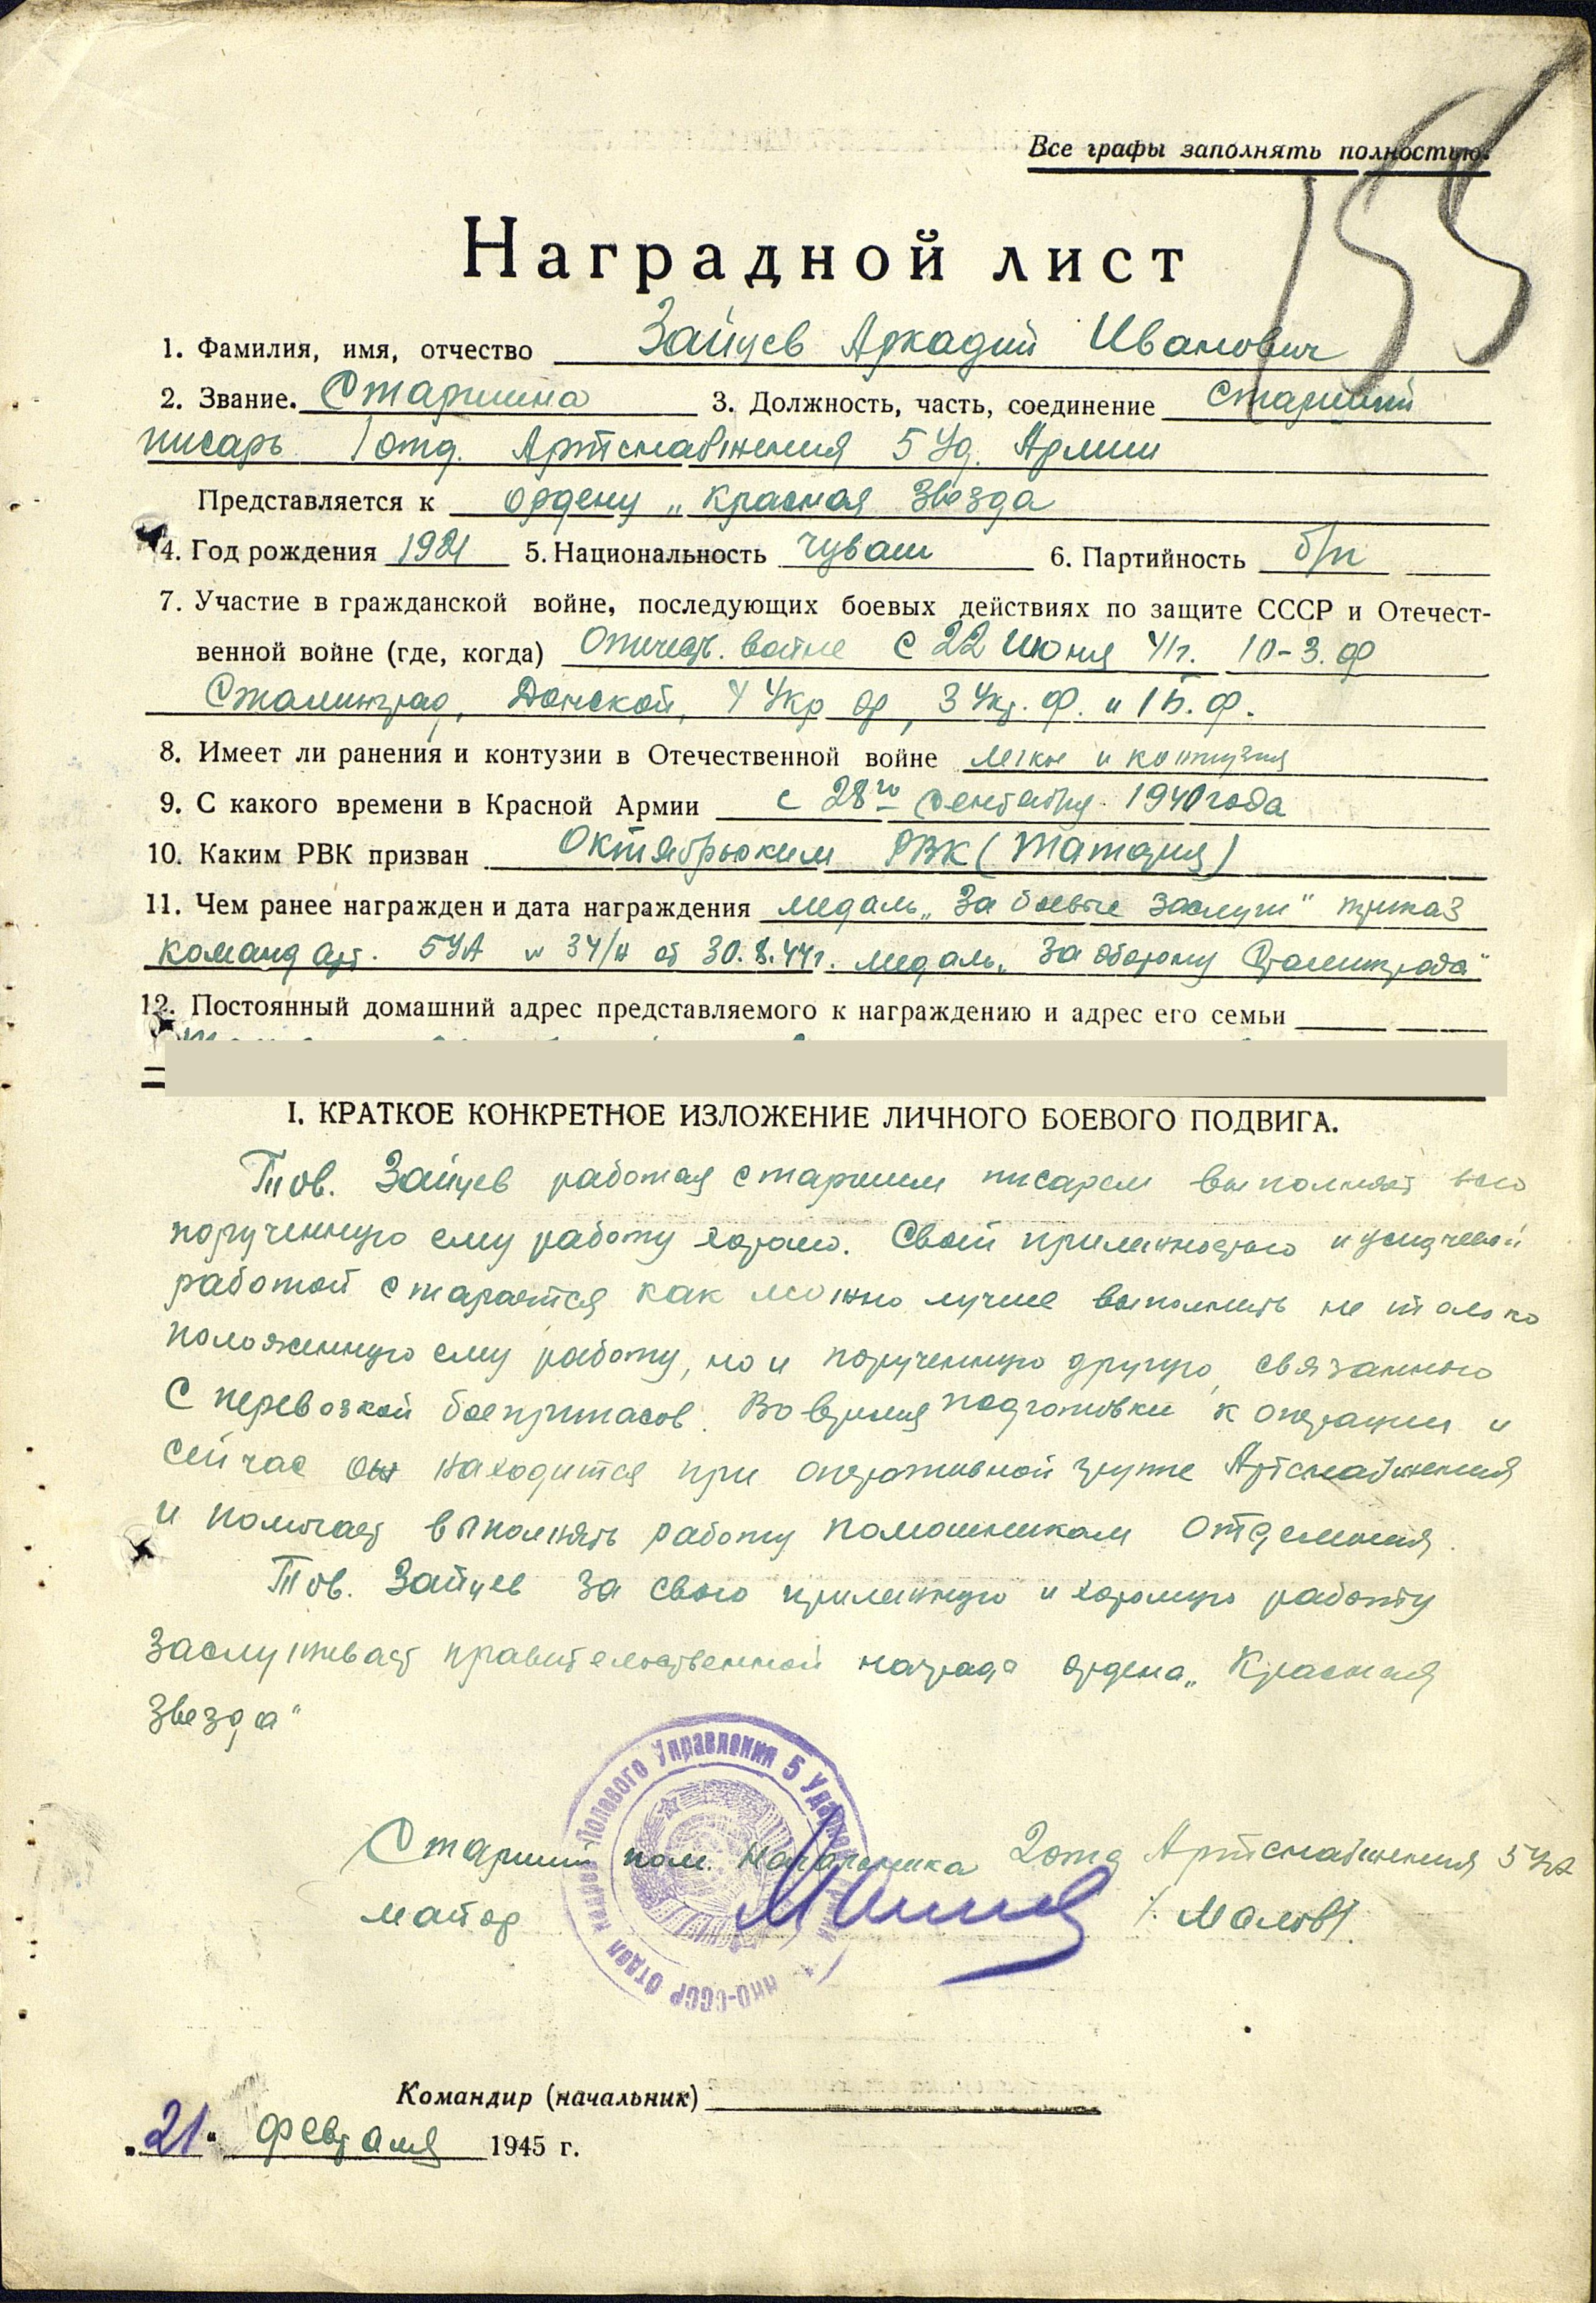 155
Все графы заполнять полностью.
Наградной лист
1. Фамилия, имя, отчество Зайцев Аркадий Иванович
2. Звание. Старшина 3. Должность, часть, соединение старший
писарь 1 отд. Артснабжения 5 Уд. Армии
Представляется к ордену „Красная Звезда
4. Год рождения 1921 5. Национальность чуваш 6. Партийность б/п
7. Участие в гражданской войне, последующих боевых действиях по защите СССР и Отечест-
венной войне (где, когда) Отечеств. войне с 22 июня 41г. Ю-З. Ф
Сталинград, Донской, 4 Укр ф, 3 Укр. Ф. и 1 Б. Ф.
8. Имеет ли ранения и контузии в Отечественной войне легкое и контузия
9. С какого времени в Красной Армии с 28го сентября 1940 года
10. Каким РВК призван Октябрьским РВК (Татария)
11. Чем ранее награжден и дата награждения медаль „За боевые заслуги" приказ
команд арт. 5УА № 34/н от 30.8.44г. медаль „За оборону Сталинграда"
12. Постоянный домашний адрес представляемого к награждению и адрес его семьи
I. КРАТКОЕ КОНКРЕТНОЕ ИЗЛОЖЕНИЕ ЛИЧНОГО БОЕВОГО ПОДВИГА.
Тов. Зайцев работая старшим писарем выполняет всю
порученную ему работу хорошо. Своей прилежностью и
работой старается как можно лучше выполнить не только
положенную ему работу, но и порученную другую, связанную
с перевозкой боеприпасов. Во время подготовки к операции и
сейчас он находится при оперативной группе Артснабжения
и помогает выполнять работу помошникам отделения.
Тов. Зайцев за свою прилежную и хорошую работу
заслуживает правительственной награда ордена „Красная
Звезда"
Старший пом. Начальника 2 отд Артснабжения 5 УА
майор /Малов/.
НКО-СССР Отдел кадров Полевого Управления 5 Ударной Армии
Командир (начальник)
„21" Февраля 1945 г.